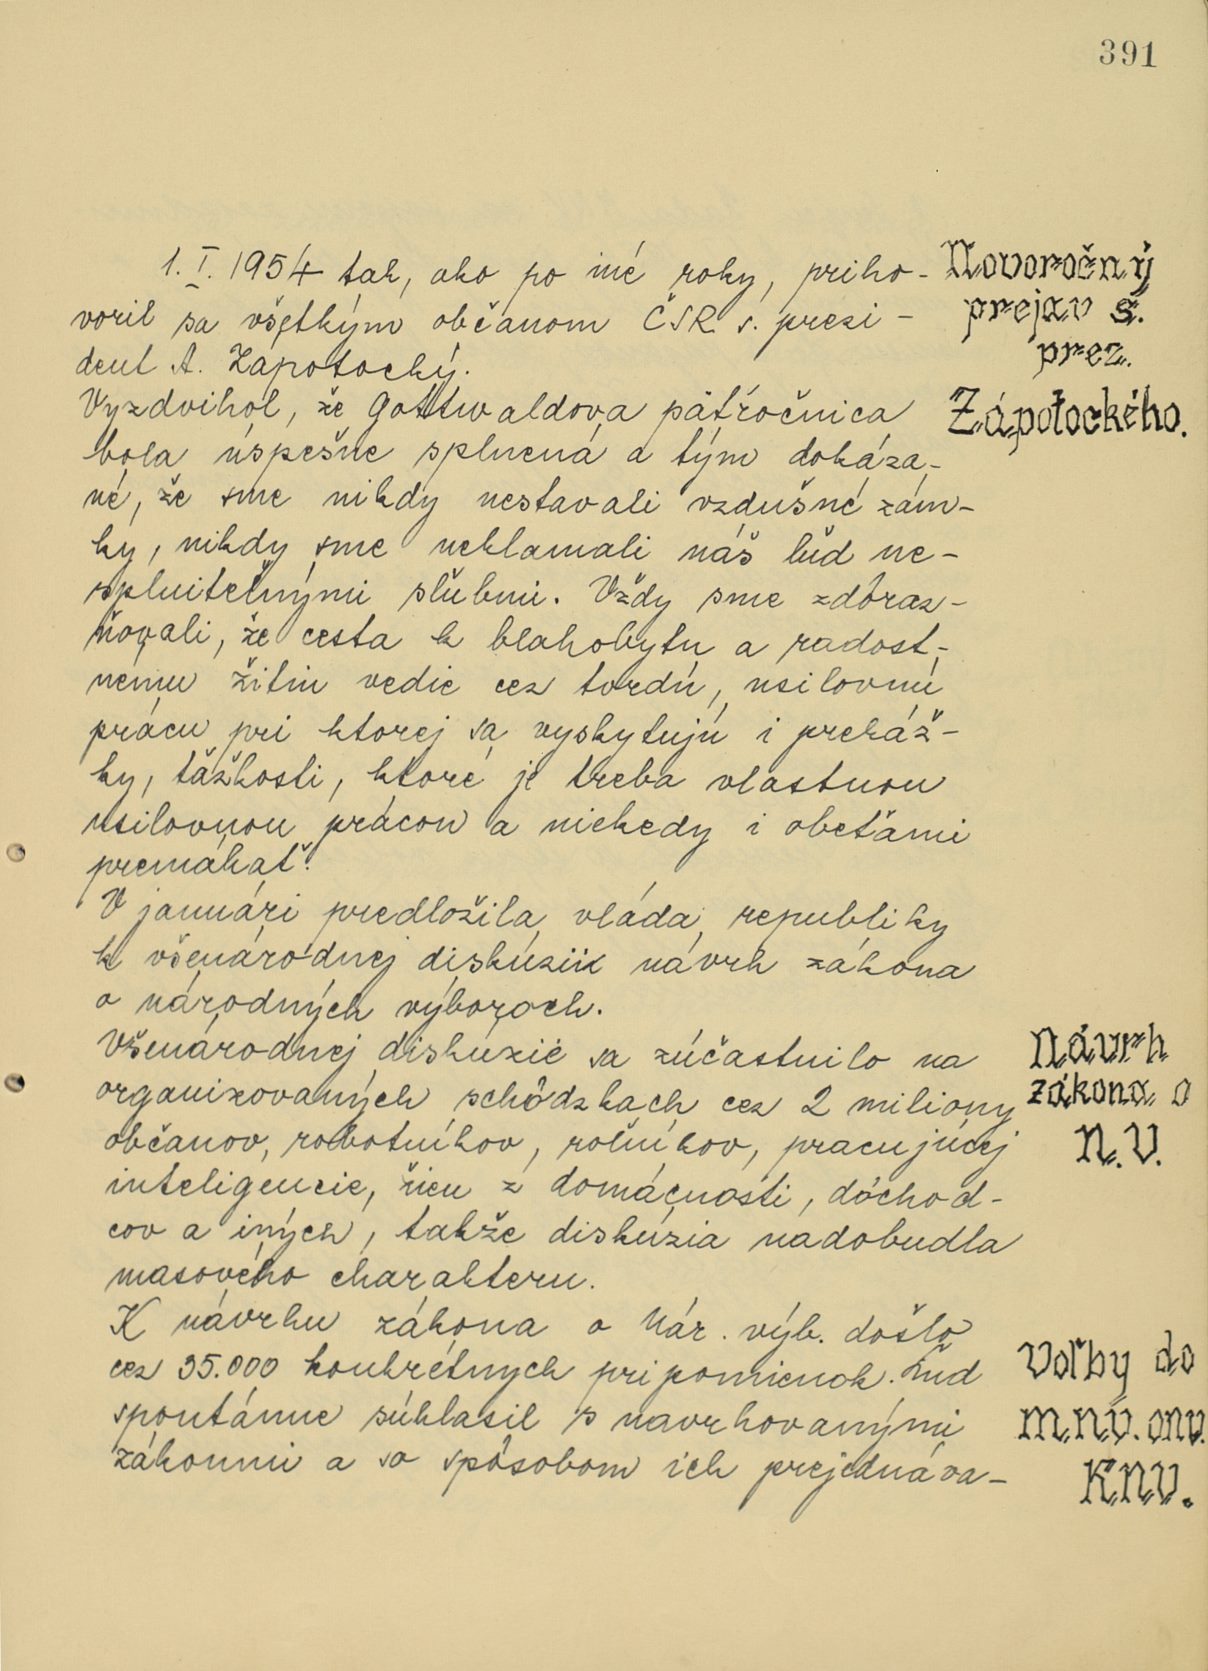 391
1. I. 1954 tak, ako po iné roky, priho-
voril sa všetkým občanom ČSR s. prezi-
dent A. Zápotocký.
Novoročný
prejav s.
prez.
Zápotockého.
Vyzdvihol, že Gottwaldova päťročnica
bola úspešne splnená a tým dokáza-
né, že sme nikdy nestavali vzdušné zám-
ky, nikdy sme neklamali náš ľud ne-
splniteľnými sľubmi. Vždy sme zdôraz-
ňovali, že cesta k blahobytu a radost-
nému žitiu vedie cez tvrdú, usilovnú
prácu pri ktorej sa vyskytujú i prekáž-
ky, ťažkosti, ktoré je treba vlastnou
usilovnou prácou a niekedy i obeťami
premáhať.
V januári predložila vláda republiky
k všenárodnej diskúzii návrh zákona
o národných výboroch.
Všenárodnej diskúzie sa zúčastnilo na
organizovaných schôdzkach cez 2 miliony
občanov, robotníkov, roľníkov, pracujúcej
inteligencie, žien z domácnosti, dôchod-
cov a iných, takže diskúzia nadobudla
masového charakteru.
Návrh
zákona o
N.V.
K návrhu zákona o Nár. výb. došlo
cez 35.000 konkrétnych pripomienok. Ľud
spontánne súhlasil s navrhovanými
zákonmi a so spôsobom ich prejednáva-
Voľby do
m.n.v. onv.
KNV.